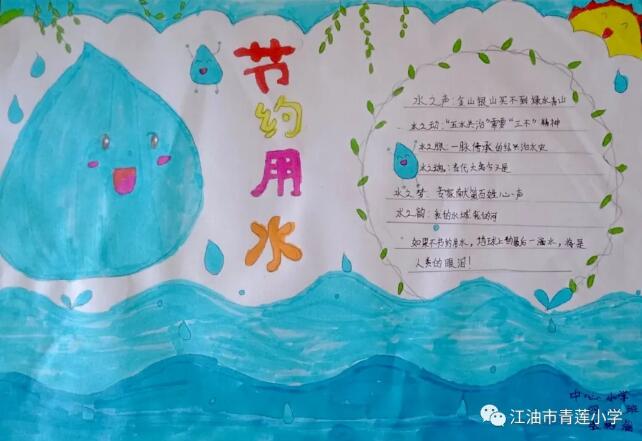 节约用水
水之声：金山银山买不到绿水青山
水之动："五水共治"需要"三不"精神
水之脉：一脉传承的绍兴治水史
水之魂：古代大禹今又是
水之梦：贡献百姓心声
水之韵：我的水城我的河
如果不节约用水，地球上的最后一滴水，将是
人类的眼泪！
中心小学
班
江油市青莲小学